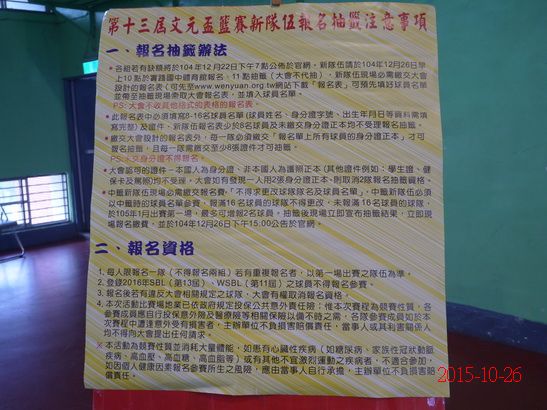 第十三屆文元盃籃賽新隊伍報名抽籤注意事項
一、報名抽籤辦法
各組若有缺額將於104年12月22日下午7點公佈於官網。新隊伍請於104年12月26日早
上10點於育錡國中體育館報名，11點抽籤（大會不代抽），新隊伍現場必需繳交大會
設計的報名表（可先至www.wenyuan.org.tw網站下載「報名表」可預先填好球員名單
並帶至抽籤現場索取大會報名表，並填入球員名單。
PS: 大會不收其他格式的表格的報名表。
此報名表中必須填寫8-16名球員名單 (球員姓名、身分證字號、出生年月日等資料需填
寫完整) 及證件，新隊伍報名表少於8名球員及未繳交身分證正本均不受理報名抽籤。
繳交大會設計的報名表外，每一隊必須繳交「報名單上所有球員的身分證正本」才可
報名抽籤，且每一隊需繳交至少8張證件才可抽籤。
PS: 未交身分證不得報名。
大會認可的證件—本國人為身分證、非本國人為護照正本 (其他證件例如：學生證、健
保卡及駕照)均不受理，大會如有發現一人用2張身分證正本，則取消2隊報名抽籤資格。
中籤新隊伍現場必需繳交報名費，「不得求更改球隊隊名及球員名單」，中籤新隊伍必須
以中籤時的球員名單參賽，報滿16名球員的球隊不得更改，未報滿16名球員的球隊，
於105年1月出賽第一場，最多可增報2名球員。抽籤後現場立即宣布抽籤結果，立即現
場報名繳費，並於104年12月26日下午15:00公告於官網。
二、報名資格
1. 每人限報名一隊（不得報名兩組）若有重複報名者，以第一場出賽之隊伍為準。
2. 登錄2016年SBL（第13屆）、WSBL（第11屆）之球員不得報名參賽。
3. 報名後若有違反大會相關規定之球隊，大會有權取消報名資格。
4. 本次活動比賽場地業已依政府規定投保公共意外責任險；惟本次賽程為競賽性質，各
參賽成員應自行投保意外險及醫療險等相關保險以備不時之需，各隊參賽成員如於本
次賽程中遭逢意外受有損害者，主辦單位不負損害賠償責任，當事人或其利害關係人
均不得向大會提出任何請求。
※ 本活動為競賽性質並將消耗大量體能，如患有心臟性疾病（如糖尿病、家族性冠狀動脈
疾病、高血壓、高血糖、高血脂等）或有其他不宜激烈運動之疾病者，不適合參加，
如因個人健康因素報名參賽所生之風險，應由當事人自行承擔，主辦單位不負損害賠
償責任。
2015-10-26